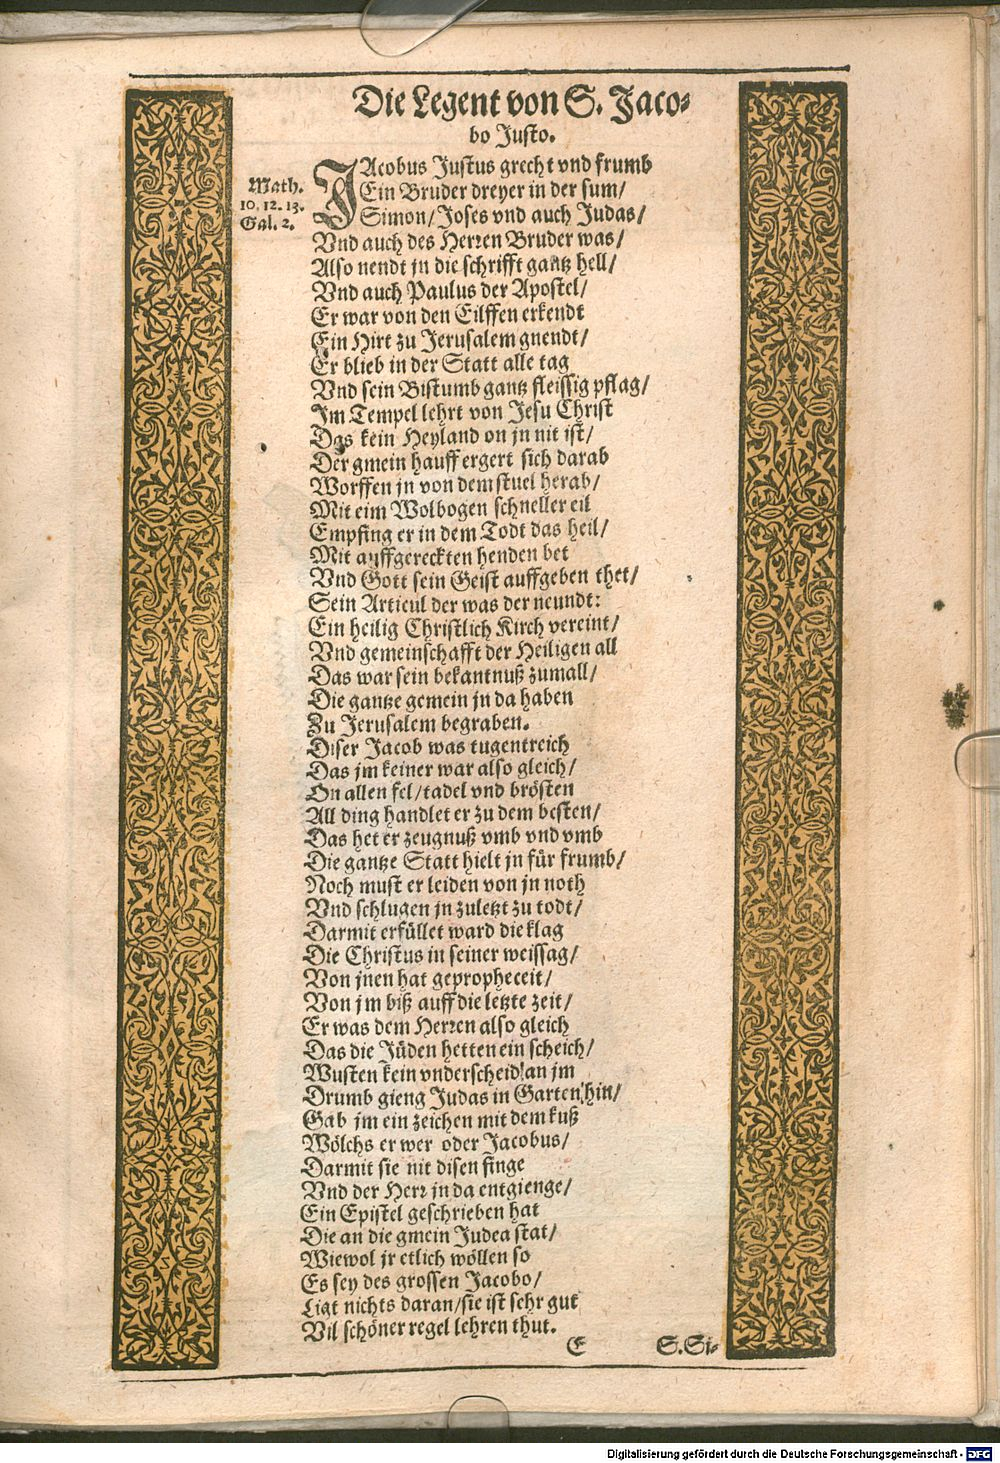 Die Legent von S. Jaco-
bo Justo.
Math.
10. 12. 13.
Gal. 2.
JAcobus Justus grecht vnd frumb
Ein Bruder dreyer in der sum/
Simon/ Joses vnd auch Judas/
Vnd auch des Herren Bruder was/
Also nendt jn die schrifft gantz hell/
Vnd auch Paulus der Apostel/
Er war von den Eilffen erkendt
Ein Hirt zu Jerusalem gnendt/
Er blieb in der Statt alle tag
Vnd sein Bistumb gantz fleissig pflag/
Im Tempel lehrt von Jesu Christ
Das kein Heyland on jn nit ist/
Der gmein hauff ergert sich darab
Worffen jn von dem stuel herab/
Mit eim Wolbogen schneller eil
Empfing er in dem Todt das heil/
Mit auffgereckten henden bet
Vnd Gott sein Geist auffgeben thet/
Sein Articul der was der neundt:
Ein heilig Christlich Kirch vereint/
Vnd gemeinschafft der Heiligen all
Das war sein bekantnuß zumall/
Die gantze gemein jn da haben
Zu Jerusalem begraben.
Diser Jacob was tugentreich
Das jm keiner war also gleich/
On allen fel/ tadel vnd brösten
All ding handlet er zu dem besten/
Das het er zeugnuß vmb vnd vmb
Die gantze Statt hielt jn für frumb/
Noch must er leiden von jn noth
Vnd schlugen jn zuletzt zu todt/
Darmit erfüllet ward die klag
Die Christus in seiner weissag/
Von jnen hat gepropheceit/
Von jm biß auff die letzte zeit/
Er was dem Herren also gleich
Das die Jüden hetten ein scheich/
Wusten kein vnderscheid an jm
Drumb gieng Judas in Garten hin/
Gab jm ein zeichen mit dem kuß
Wölchs er wer oder Jacobus/
Darmit sie nit disen finge
Vnd der Herr jn da entgienge/
Ein Epistel geschrieben hat
Die an die gmein Judea stat/
Wiewol jr etlich wöllen so
Es sey des grossen Jacobo/
Ligt nichts daran/ sie ist sehr gut
Vil schöner regel lehren thut.
E S. Si-
Digitalisierung gefördert durch die Deutsche Forschungsgemeinschaft - DFG